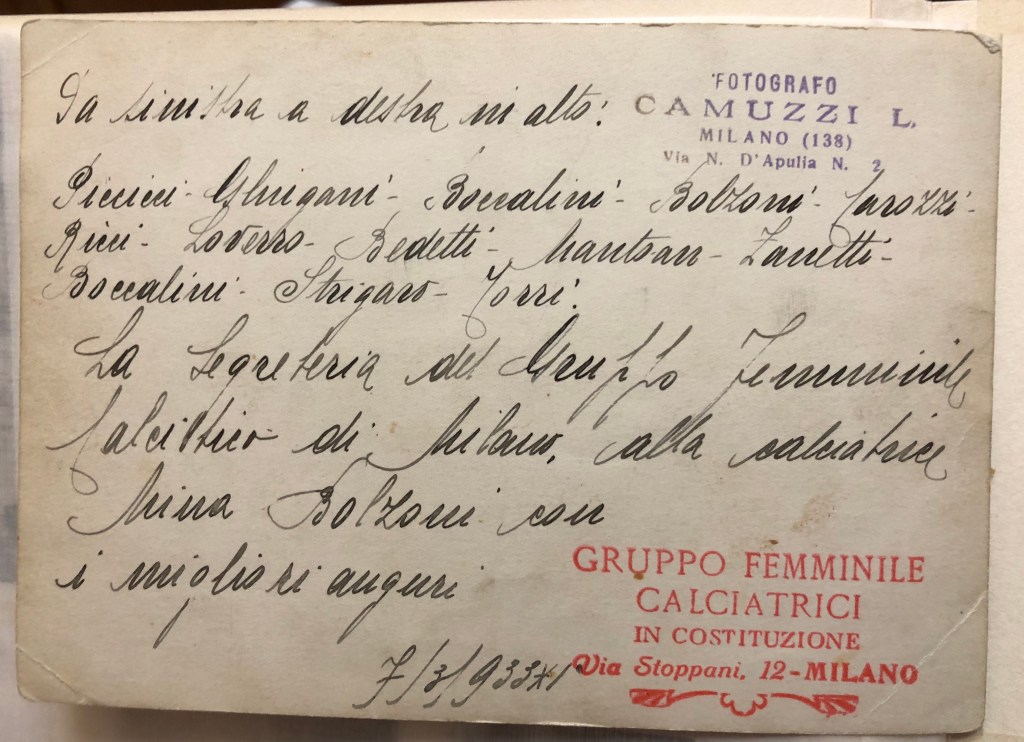 Da sinistra a destra in alto:
FOTOGRAFO
CAMUZZI L.
MILANO (138)
Via N. D'Apulia N. 2
Piccicci - Ghrigani - Boccalini - Bolzoni - Carozzi -
Ricci - Loverro - Bedetti - Mantoan - Zanetti -
Boccalini - Strigaro - Torri.
La Segreteria del Gruppo Femminile
Calcistico di Milano, alla calciatrice
Nina Bolzoni con
i migliori auguri
7/3/933 XI
GRUPPO FEMMINILE
CALCIATRICI
IN COSTITUZIONE
Via Stoppani, 12 - MILANO